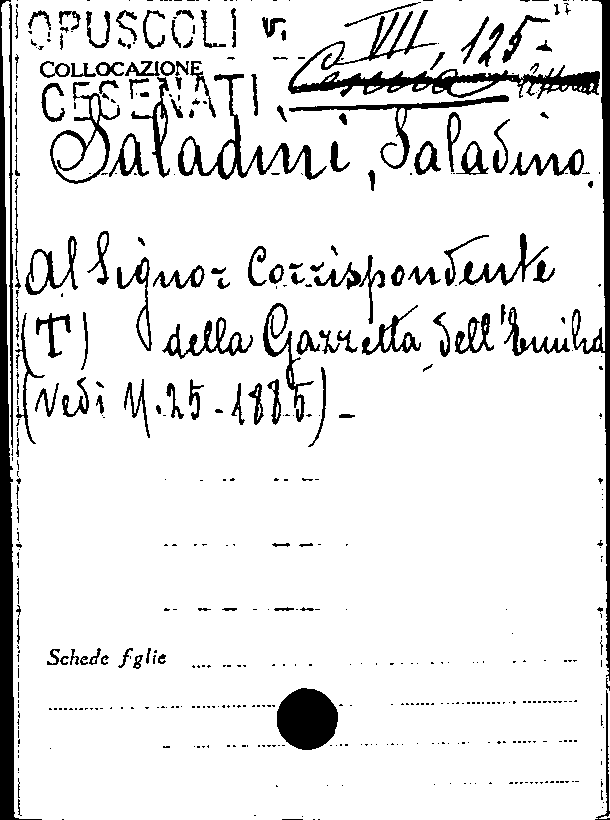 17
OPUSCOLI v. VII, 125-
COLLOCAZIONE
CESENATI.
Saladini, Saladino.
Al Signor Corrispondente
(T) della Gazzetta dell'Emilia
(Vedi N. 25-1885)-
Schede figlie